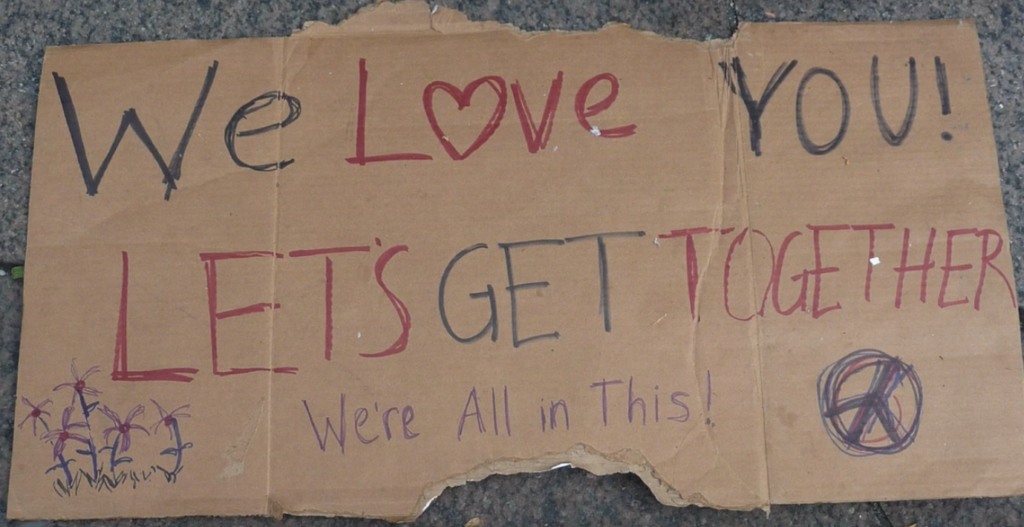 We Love YOU!
LET'S GET TOGETHER
We're All in This!